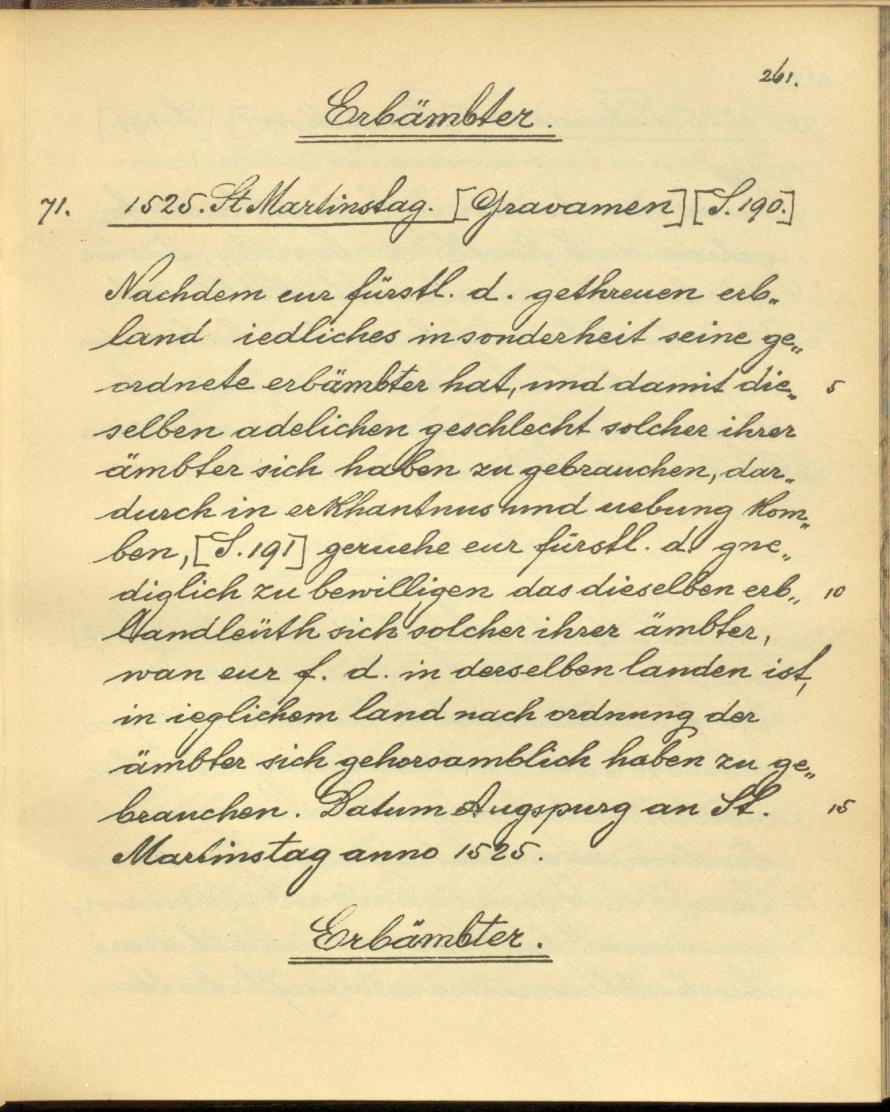 261.
Erbämbter.
71. 1525. St Martinstag. [Gravamen] [S. 190.]
Nachdem eur fürstl. d. gethreuen erb„
land iedliches insonderheit seine ge„
ordnete erbämbter hat, und damit die„ 5
selben adelichen geschlecht solcher ihrer
ämbter sich haben zu gebrauchen, dar„
durch in erkhantnus und uebung kom„
ben, [S. 191] geruehe eur fürstl. d. gne„
diglich zu bewilligen das dieselben erb„ 10
landleüth sich solcher ihrer ämbter,
wan eur f. d. in derselben landen ist,
in ieglichem land nach ordnung der
ämbter sich gehorsamblich haben zu ge„
brauchen. Datum Augspurg an St. 15
Martinstag anno 1525.
Erbämbter.